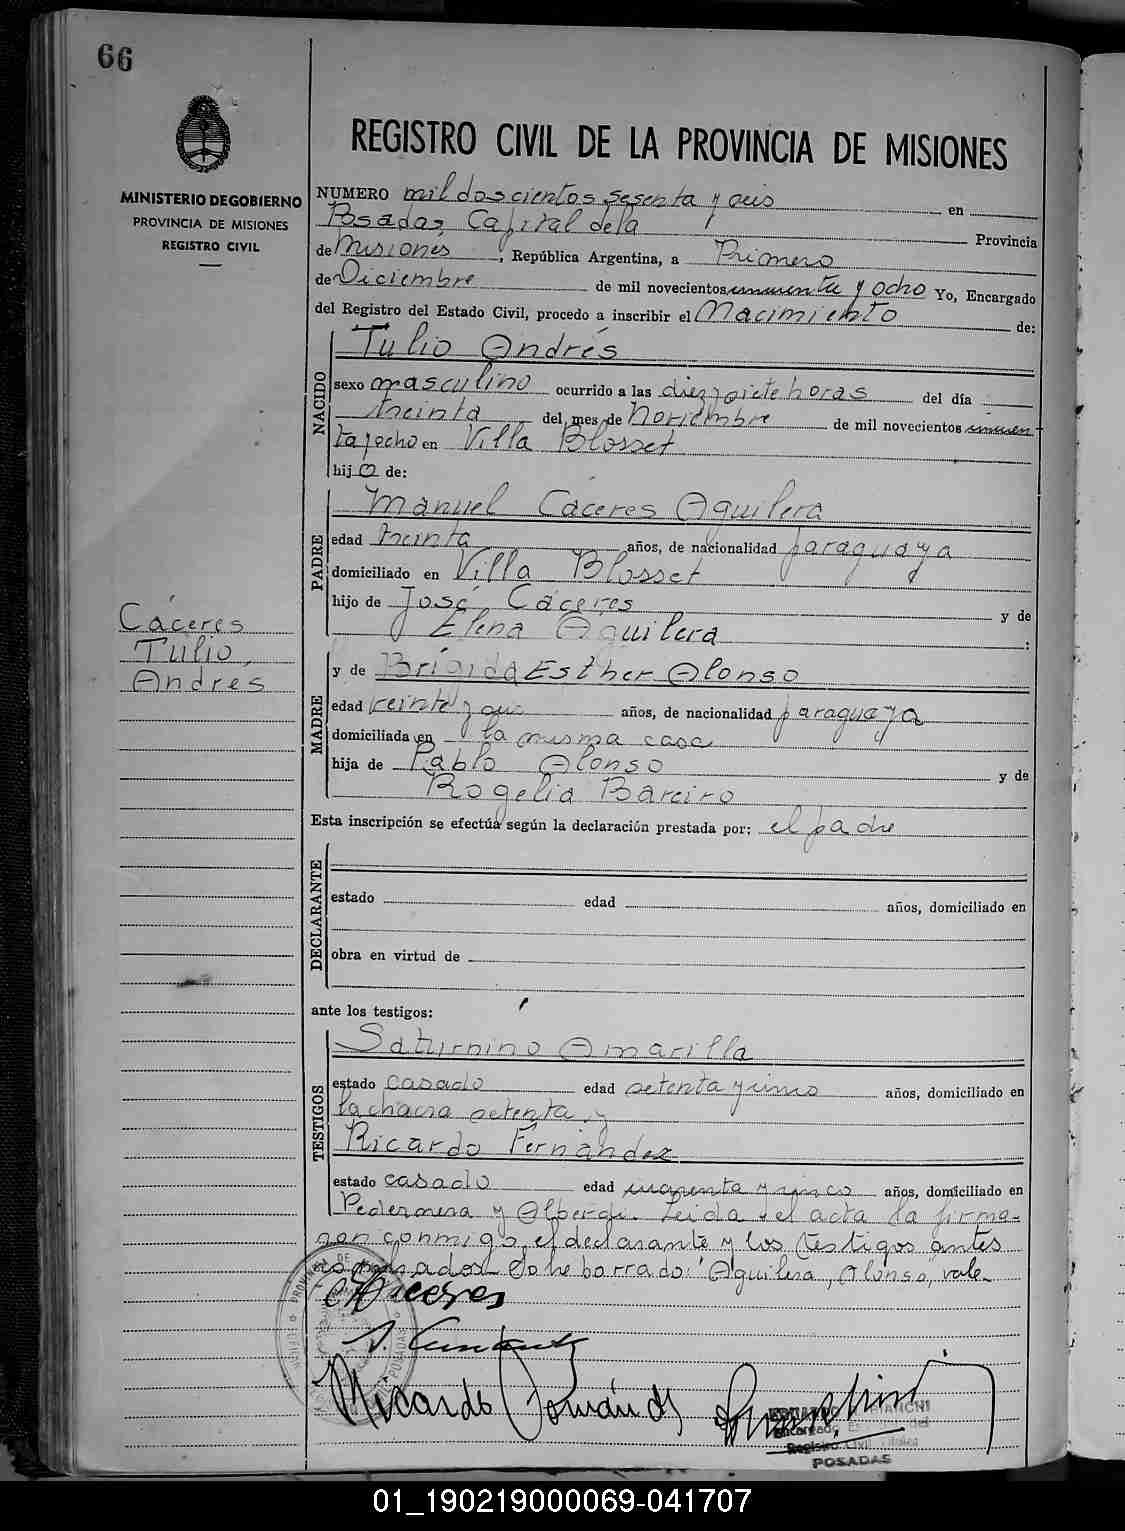 66
REGISTRO CIVIL DE LA PROVINCIA DE MISIONES
MINISTERIO DE GOBIERNO
PROVINCIA DE MISIONES
REGISTRO CIVIL
NUMERO mil doscientos sesenta y seis en
Posadas, Capital de la Provincia
de Misiones, República Argentina, a Primero
de Diciembre de mil novecientos cincuenta y ocho Yo, Encargado
del Registro del Estado Civil, procedo a inscribir el Nacimiento de:
NACIDO
Tulio Andrés
sexo masculino ocurrido a las diez y siete horas del día
treinta del mes de Noviembre de mil novecientos cincuen
ta y ocho en Villa Blosset
hijo de:
PADRE
Manuel Cáceres Aguilera
edad treinta años, de nacionalidad paraguaya
domiciliado en Villa Blosset
hijo de José Cáceres y de
Elena Aguilera :
Cáceres
Tulio,
Andrés
MADRE
y de Brígida Esther Alonso
edad veinte y seis años, de nacionalidad paraguaya
domiciliada en la misma casa
hija de Pablo Alonso y de
Rogelia Bareiro
Esta inscripción se efectúa según la declaración prestada por: el padre
DECLARANTE
estado edad años, domiciliado en
obra en virtud de
ante los testigos:
TESTIGOS
Saturnino Amarilla
estado casado edad setenta y uno años, domiciliado en
la chacra setenta, y
Ricardo Fernández
estado casado edad cuarenta y cinco años, domiciliado en
Pedernera y Alberdi. Leida el acta la firma-
ron conmigo, el declarante y los testigos antes
nombrados. So he borrado: "Aguilera, Alonso," vale-
Cáceres
Ricardo Fernández
Encargado
Registro Civil
POSADAS
01_190219000069-041707